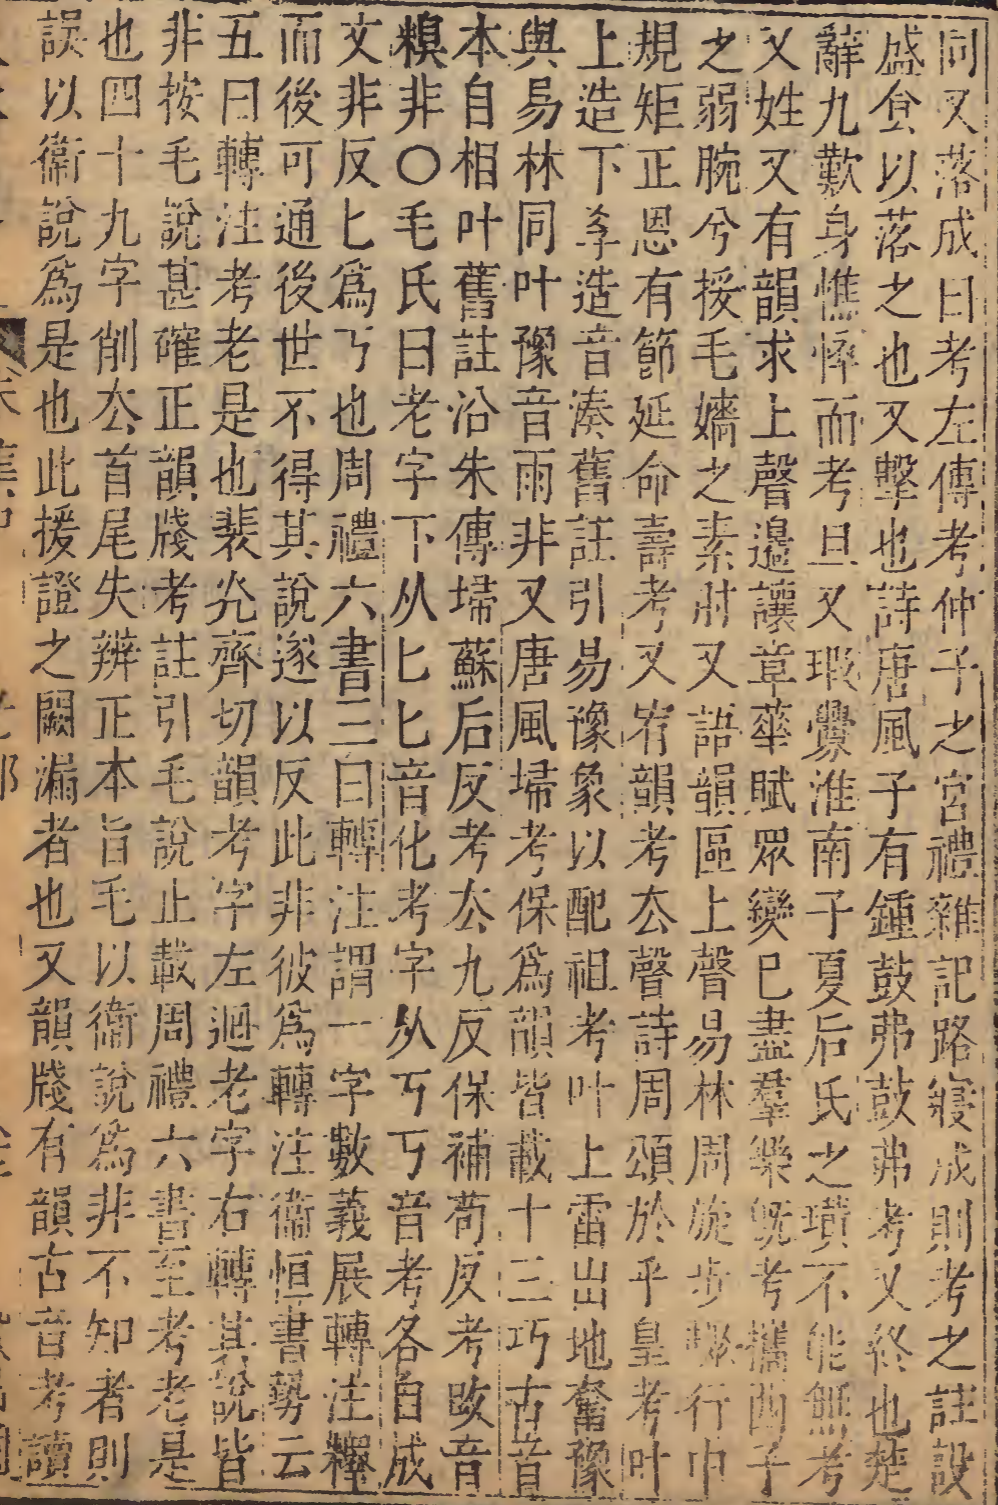 同又落成曰考左傳考仲子之宮禮雜記路寢成則考之註設
盛食以落之也又擊也詩唐風子有鍾鼓弗鼓弗考又終也楚
辭九歎身憔悴而考旦又瑕釁淮南子夏后氏之璜不能無考
又姓又有韻求上聲邊讓章華賦眾變已盡羣樂旣考攜西子
之弱腕兮援毛嬙之素肘又語韻區上聲易林周旋步驟行中
規矩正恩有節延命壽考又宥韻考厺聲詩周頌於乎皇考叶
上造下孝造音湊舊註引易豫象以配祖考叶上雷出地奮豫
與易林同叶豫音雨非又唐風埽考保爲韻皆載十三巧古音
本自相叶舊註沿朱傳埽蘇后反考厺九反保補苟反考攺音
糗非〇毛氏曰老字下从匕匕音化考字从丂丂音考各自成
文非反匕爲丂也周禮六書三曰轉注謂一字數義展轉注釋
而後可通後世不得其說遂以反此非彼爲轉注衞恒書勢云
五曰轉注考老是也裴光齊切韻考字左迴老字右轉其說皆
非按毛說甚確正韻牋考註引毛說止載周禮六書至考老是
也四十九字削厺首尾失辨正本旨毛以衞說爲非不知者則
誤以衞說爲是也此援證之闕漏者也又韻牋有韻古音考讀